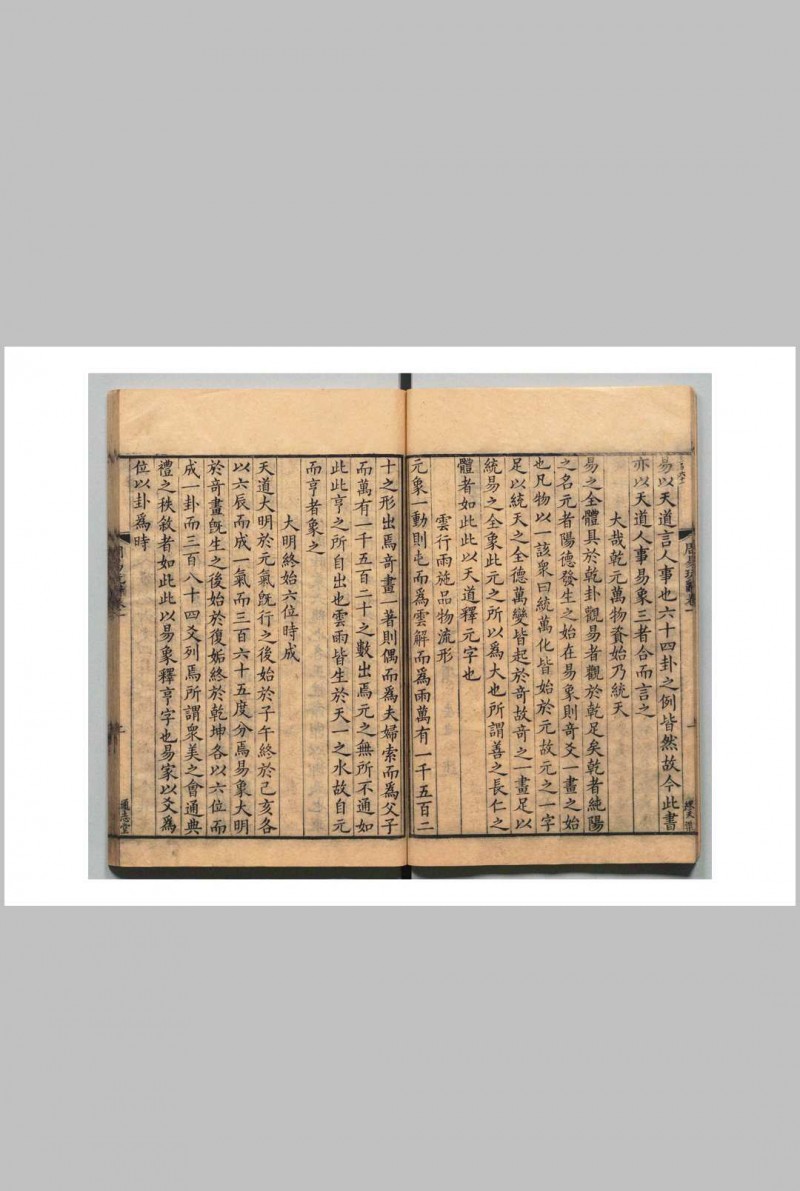 易以天道言人事也六十四卦之例皆然故今此書
亦以天道人事易象三者合而言之
大哉乾元萬物資始乃統天
易之全體具於乾卦觀易者觀於乾足矣乾者純陽
之名元者陽德發生之始在易象則奇爻一畫之始
也凡物以一該衆曰統萬化皆始於元故元之一字
足以統天之全德萬變皆起於奇故奇之一畫足以
統易之全象此元之所以為大也所謂善之長仁之
體者如此此以天道釋元字也
雲行雨施品物流形
元象一動則屯而爲雲解而爲雨萬有一千五百二
十之形出焉奇畫一著則偶而為夫婦索而為父子
而萬有一千五百二十之數出焉元之無所不通如
此此亨之所自出也雲雨皆生於天一之水故自元
而亨者象之
大明終始六位時成
天道大明於元氣旣行之後始於子午終於己亥各
以六辰而成一氣而三百六十五度分焉易象大明
於奇畫旣生之後始於復姤終於乾坤各以六位而
成一卦而三百八十四爻列焉所謂衆美之會通典
禮之秩敘者如此此以易象釋亨字也易家以爻爲
位以卦爲時
周易玩辭卷一
一
通志堂